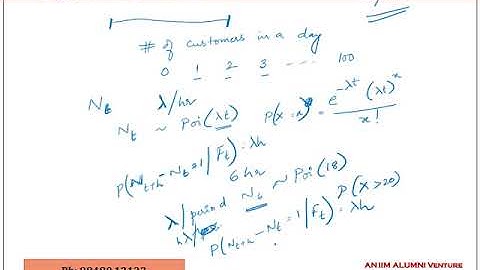 # of customers in a day
0 1 2 3 ---- 100
N_t λ/hr
N_t ~ Poi(λt) P(X=x) = e^{-λt} (λt)^x / x!
P(N_{t+h} - N_t = 1 | F_t) = λh
6 hr
λ/period N_6 ~ Poi(18) P(X>20)
P(N_{t+h} - N_t = 1 | F_t) = λh
AN IIM ALUMNI VENTURE